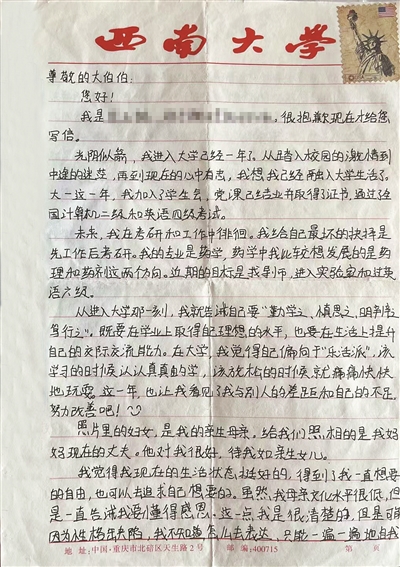 西南大学
尊敬的大伯伯:
您好!
我是 。很抱歉现在才给您
写信。
光阴似箭,我进入大学已经一年了。从踏入校园的激情到
中途的迷茫,再到现在的心中有志,我想我已经融入大学生活了。
大一这一年,我加入了学生会,党课已结业并取得了证书,通过了全
国计算机二级和英语四级考试。
未来,我在考研和工作中徘徊。我给自己最坏的抉择是
先工作后考研。我的专业是药学,药学中我比较想发展的是药
理和药剂这两个方向。近期的目标是找导师,进入实验室和过英
语六级。
从进入大学那一刻,我就告诫自己要“勤学之,慎思之,明判之,
笃行之”。既要在学业上取得自己理想的水平,也要在生活上提升
自己的交际交流能力。在大学,我觉得自己偏向于“乐活派”,该
学习的时候认认真真的学,该放松的时候就痛痛快快
地玩耍。这一年,也让我看见了我与别人的差距和自己的不足,
努力改善吧!
照片里的妇女,是我的亲生母亲,给我们照相的是我妈
妈现在的丈夫。他对我很好,待我如亲生女儿。
我觉得我现在的生活状态挺好的,得到了我一直想要
的自由,也可以去追求自己想要的。虽然,我母亲文化水平很低,但
是一直告诫我要懂得感恩。这一点,我是很清楚的,但是可能
因为性格缺陷,我不知道怎么去表达,只能一遍一遍地自我
地 址:中国·重庆市北碚区天生路2号 邮 编:400715 第 页